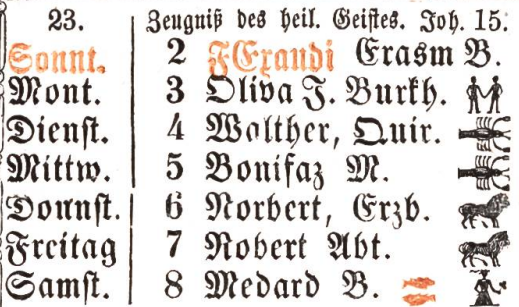 23. Zeugniß des heil. Geistes. Joh. 15.
Sonnt. 2 F Exaudi Erasm B.
Mont. 3 Oliva J. Burkh.
Dienst. 4 Walther, Quir.
Mittw. 5 Bonifaz M.
Donnst. 6 Norbert, Erzb.
Freitag 7 Robert Abt.
Samst. 8 Medard B.